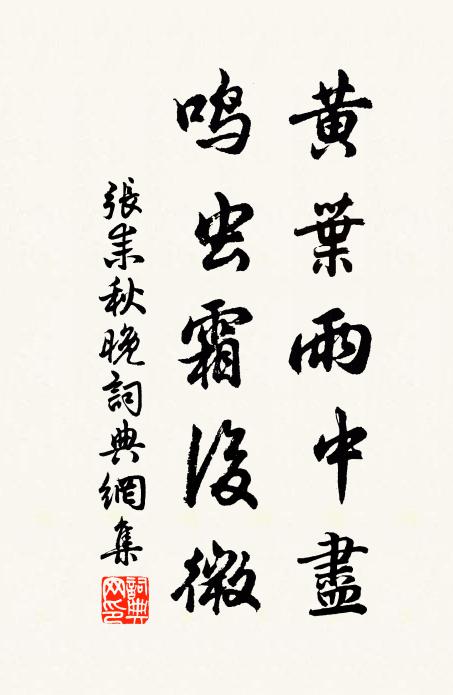 黃葉雨中盡
鳴虫霜後微
張耒秋晚詞典網集
詞典網印